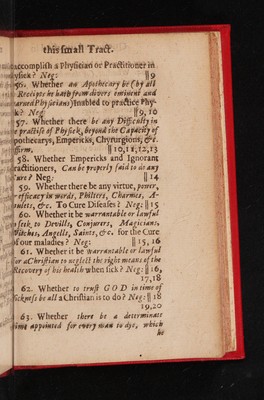 this small Tract.
accomplish a Physitian or Practitioner in
Physick? Neg: ||9
56. Whether an Apothecary be (by all
Receipts he hath from divers eminent and
Learned Physitians) inabled to practice Phy-
? Neg: ||9, 10
57. Whether there be any Difficulty in
practise of Physick, beyond the Capacity of
Apothecarys, Empericks, Chyrurgions, &c.
||10, 11, 12, 13
58. Whether Empericks and Ignorant
Practitioners, Can be properly said to do any
Cure? Neg: ||14
59. Whether there be any virtue, power,
or efficacy in words, Philters, Charmes, A-
mulets, &c. To Cure Diseases? Neg: ||15
60. Whether it be warrantable or lawful
to seek to Devills, Conjurers, Magicians,
Witches, Angells, Saints, &c. for the Cure
of our maladies? Neg: ||15, 16
61. Whether it be warrantable or lawful
for a Christian to neglect the right means of the
Recovery of his health when sick? Neg: ||16,
17, 18
62. Whether to trust GOD in time of
Sickness be all a Christian is to do? Neg: ||18
19, 20
63. Whether there be a determinate
time appointed for every man to dye, which
he